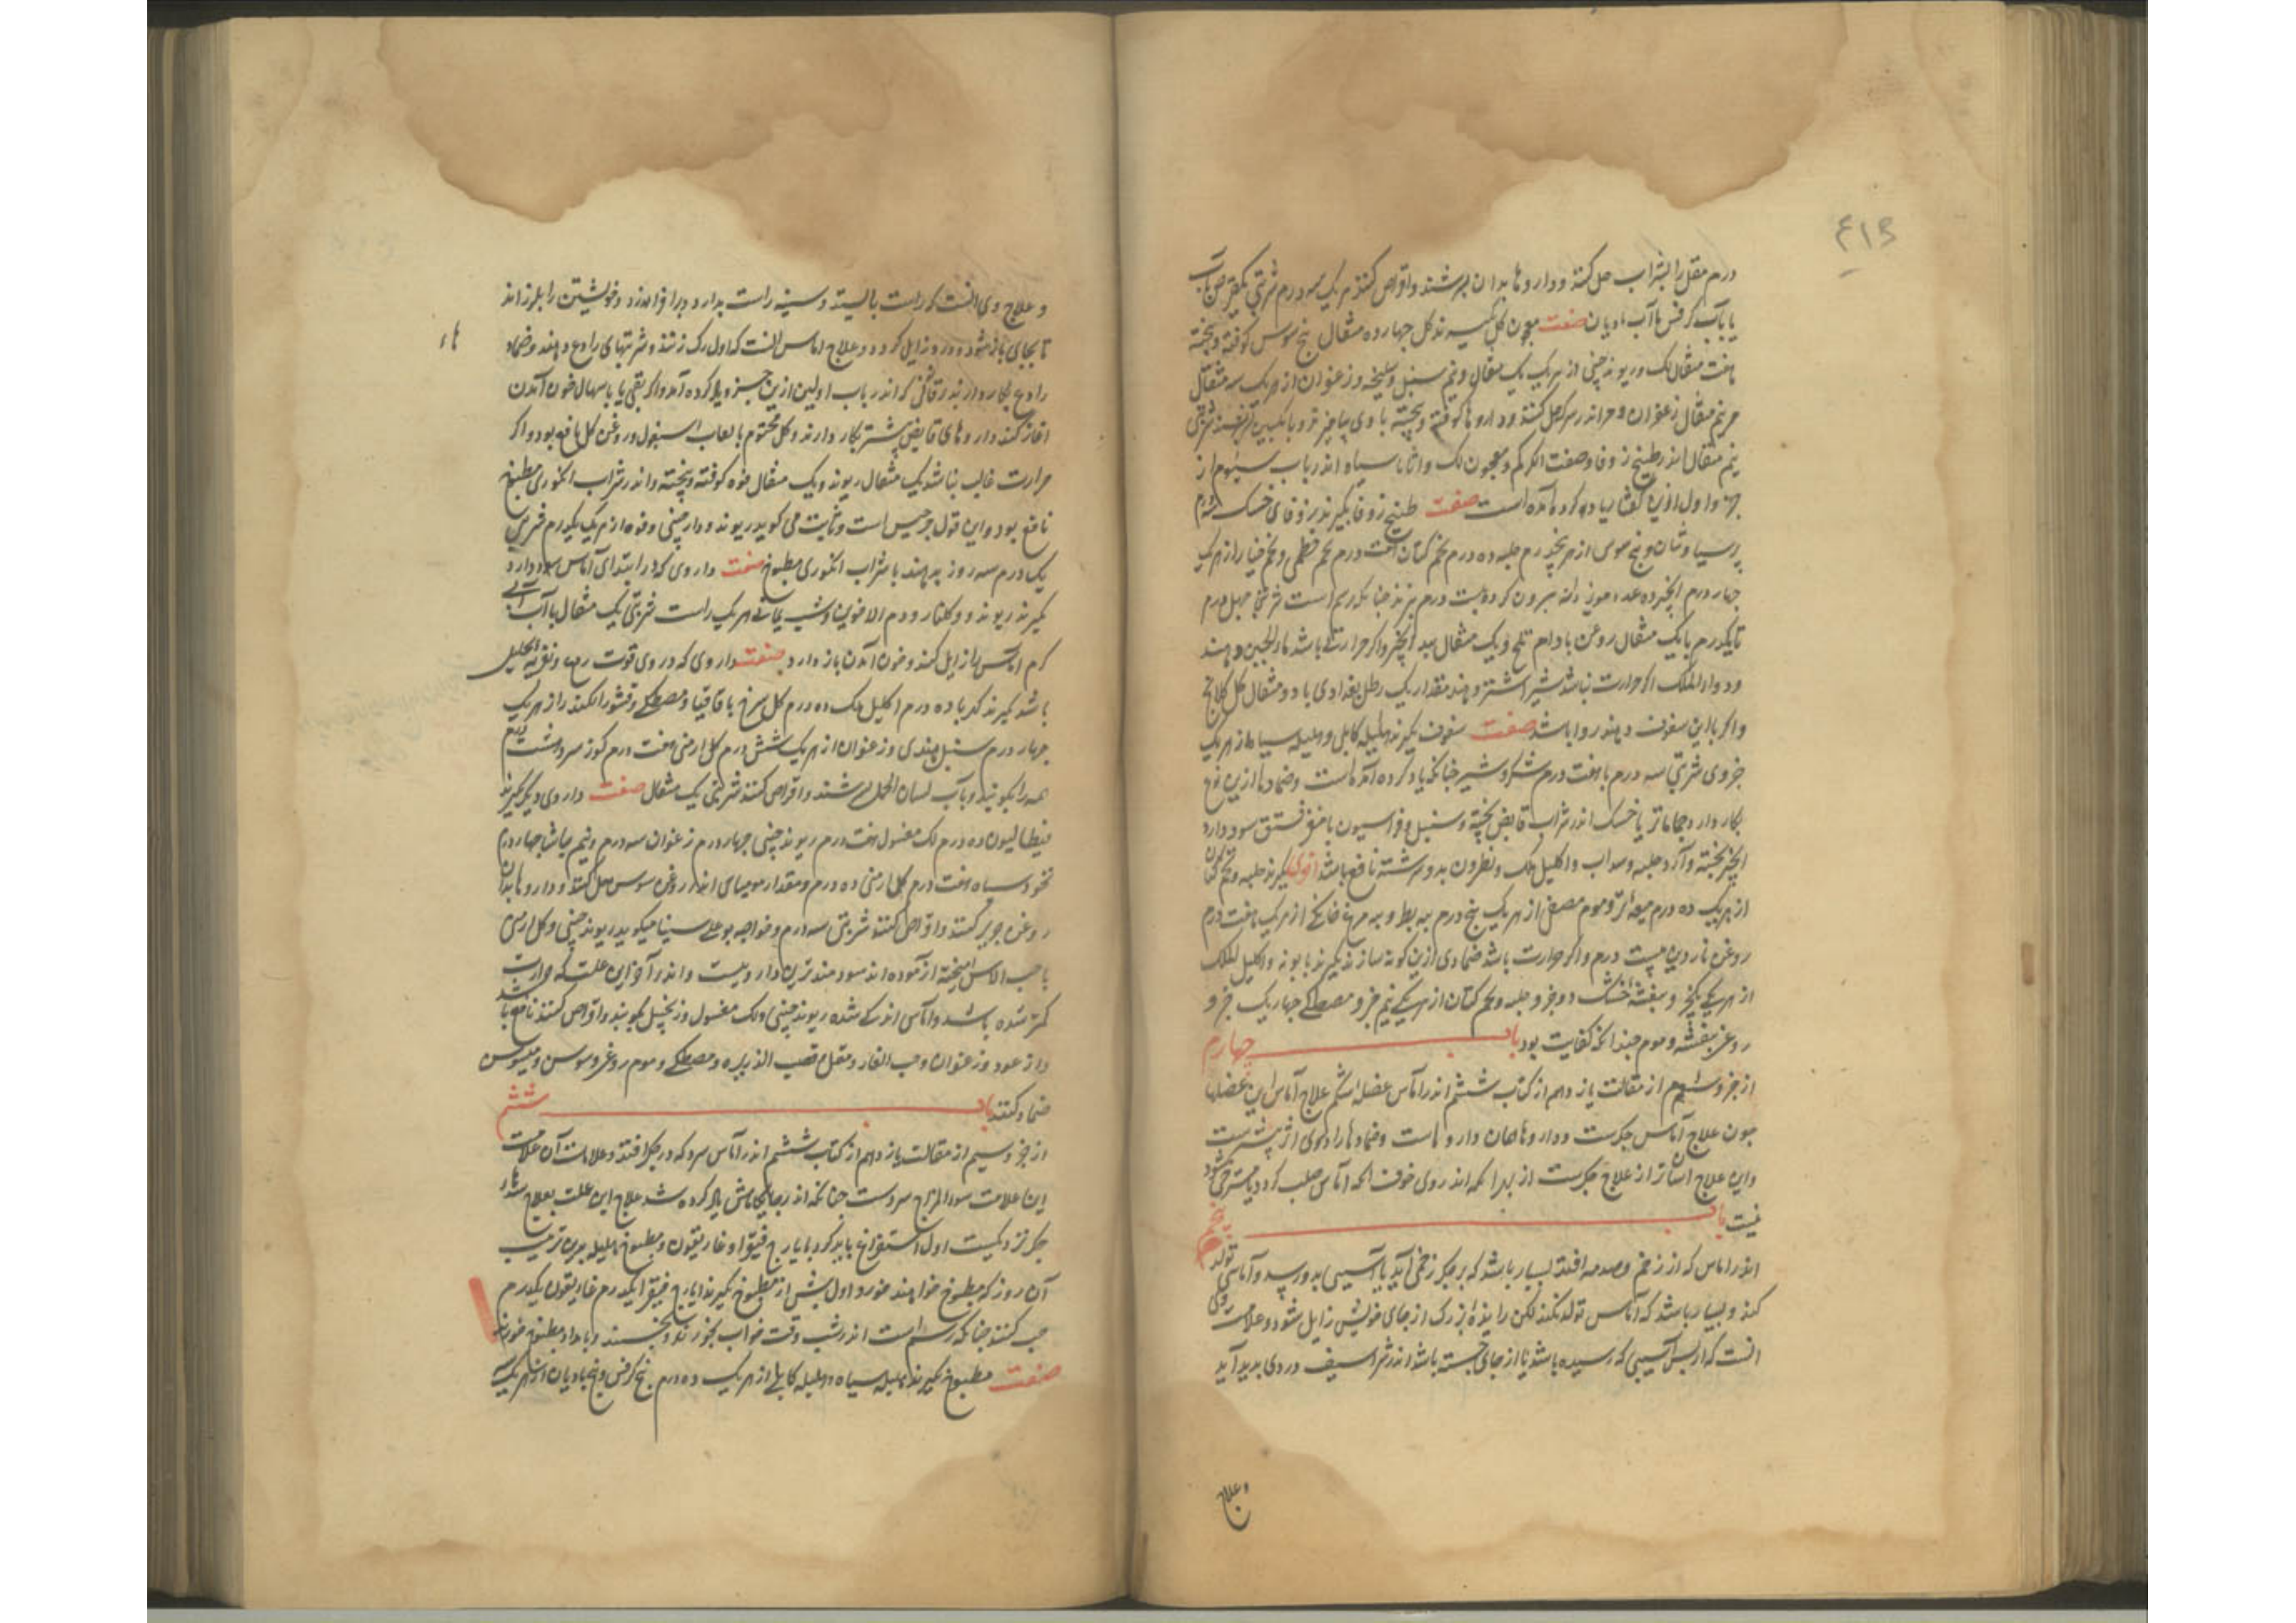 ۴۱۹
درم مقل را بشراب حل کنند و داروها بدان بسرشند و اقراص کنند هر یک سه درم شربتی یک قرص با آب
یا بآب کرفس یا آب بادیان صفت معجون کل بکیرند کل چهارده مثقال بیخ سوس کوفته و پخته
هفت مثقال لک و ریوند چینی از هر یک یک مثقال و نیم سنبل و سلیخه و زعفران از هر یک سه مثقال
نیم مثقال زعفران اندر سرکه حل کنند و داروها کوفته و پخته با وی بیامیزند و بانکبین بسرشند شربتی
نیم مثقال اندر طبیخ زوفا و صفت الکرکم و معجون لک و اثاناسیا اندر باب سیوم از
جزو اول ازین کفتار یاد کرده آمده است صفت طبیخ زوفا بکیرند زوفای خشک
پرسیاوشان و بیخ سوس از هر پنج درم حلبه ده درم تخم کتان هفت درم تخم خطمی و تخم خیار از هر یک
چهار درم انجیر ده عدد مویز دانه بیرون کرده بیست درم بپزند چنانکه رسم است شربتی چهل درم
تا یکدرم با یک مثقال روغن بادام تلخ و یک مثقال بید انجیر و اکر حرارتی باشد ماء الجبن دهند
و دواء الملک اکر حرارت نباشد شیر اشتر دهند مقدار یک رطل بغدادی با دو مثقال کل کلانج
و اکر با این سفوف دهند روا باشد صفت سفوف بکیرند هلیله کابلی و هلیله سیاه از هر یک
جزوی شربتی سه درم با هفت درم شکر و شیر چنانکه یاد کرده آمده است و ضمادها ازین نوع
بکار دارد خشک اندر شراب قابض پخته و سنبل و فراسیون با مغز فستق سود دارد
انجیر پخته و آرد حلبه و سداب و اکلیل ملک و نطرون بدو سرشته نافع باشد نوعی بکیرند حلبه و تخم کتان
از هر یک ده درم میعه تر و موم مصفی از هر یک پنج درم پیه بط و پیه مرغ خانکی از هر یک هفت درم
روغن ناردین بیست درم و اکر حرارت باشد ضمادی ازین کونه سازند بکیرند بابونه و اکلیل الملک
از هر یکی یکجزو بنفشه خشک دو جزو حلبه و تخم کتان از هر یکی نیم جزو مصطکی چهار یک جزو
روغن بنفشه و موم چندانکه کفایت بود باب چهارم
از جزو سیوم از مقالت یازدهم از کتاب ششم اندر آماس عضلهاء شکم علاج آماس این عضلها
چون علاج آماس جکرست و داروها همان داروهاست و ضمادها را دروی اثر بیشترست
و این علاج آسانتر از علاج جکرست از بهر آنکه اندر وی خوف آنکه آماس صلب کردد بیشتر
نیست باب پنجم
اندر آماس که از زخم و صدمه افتد بسیار باشد که بر جکر زخمی آید یا آسیبی بدو رسد و آماسی تولد
کند و بسیار باشد که آماس تولد نکند لکن زایده بزرک از جای خویش زایل شود و علامت
آنست که از پس آسیبی که رسیده باشد یا از جای جسته باشد اندر شراسیف دردی پدید آید
و علاج
و علاج وی آنست که راست بایستد و سینه راست بدارد و برافرازد و خویشتن را بلرزاند
تا بجای باز شود و درد زایل کردد و علاج آماس آنست که اول رک زنند و شربتهای رادع دهند و ضماد
رادع بکار دارند که اندر باب اولین ازین جزو یاد کرده آمد و اکر بقی یا باسهال خون آمدن
آغاز کند داروهای قابض پیشتر بکار دارند و کل مختوم با لعاب اسبغول و روغن کل نافع بود و اکر
حرارت غالب نباشد یک مثقال ریوند و یک مثقال فوه کوفته و پخته و اندر شراب انکوری مطبوخ
نافع بود و این قول جرجیس است و ثابت می کوید ریوند و دارچینی و فوه از هر یک یکدرم شربتی
یک درم سه روز بدهند با شراب انکوری مطبوخ صفت داروی که در ابتدای آماس سود دارد
بکیرند ریوند و کلنار و دم الاخوین و شب یمانی هر یک راست شربتی یک مثقال با آب
کرم آماس زایل کند و خون آمدن باز دارد صفت داروی که در وی قوت ردع و تقویت و تحلیل
باشد بکیرند کهربا ده درم اکلیل ملک ده درم کل سرخ با قاقیا و مصطکی و قشور الکندر از هر یک
چهار درم سنبل هندی و زعفران از هر یک شش درم کل ارمنی هفت درم جوز سرو هشت درم
همه را بکوبند و بآب لسان الحمل بسرشند و اقراص کنند شربتی یک مثقال صفت داروی دیکر بکیرند
ده درم لک مغسول هفت درم ریوند چینی چهار درم زعفران سه درم و نیم ماش چهار درم
نخود سیاه هفت درم کل ارمنی ده درم و مقدار مومیای اندر روغن سوسن حل کنند و داروها بدان
روغن چرب کنند و اقراص کنند شربتی سه درم و خواجه بوعلی سینا میکوید ریوند چینی و کل ارمنی
با حب الاس آمیخته آزموده اند سودمندترین داروییست و اندر آخر این علت که حرارت
کمتر شده باشد و آماس اندکی شده ریوند چینی و لک مغسول و زنجبیل بکوبند و اقراص کنند نافع باشد
و از عود و زعفران و حب الغار و مقل و قصب الذریره و مصطکی و موم و روغن سوسن و میسوسن
ضماد کنند باب ششم
از جزو سیم از مقالت یازدهم از کتاب ششم اندر آماس سرد که در جکر افتد و علامات آن علامت
این علامت سوء المزاج سردست چنانکه اندر جایکاهش یاد کرده شد علاج این علت بعلاج سده
جکر نزدیکست اول استفراغ باید کرد بایارج فیقرا و غاریقون و مطبوخ هلیله برین ترتیب
آن روز که مطبوخ خواهند خورد اول پیش از مطبوخ بکیرند ایارج فیقرا یکدرم غاریقون یکدرم
حب کنند چنانکه رسم است اندر شب وقت خواب بخورند و بخسبند و بامداد مطبوخ خورند
صفت مطبوخ بکیرند هلیله سیاه و هلیله کابلی از هر یک ده درم بیخ کرفس و بیخ بادیان از هر یک سه